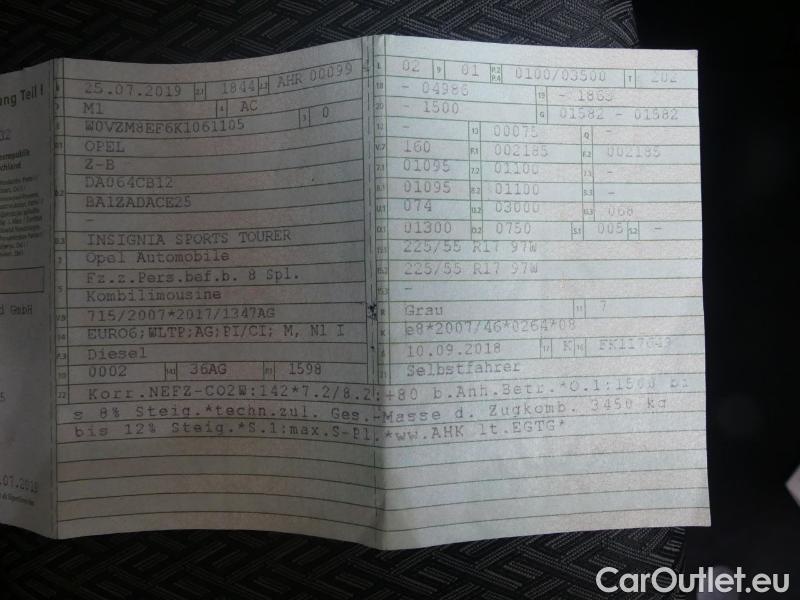 ung Teil I
25.07.2019 2.1 1844 2.2 AHR 00099
M1 4 AC
W0VZM8EF6K1061105 3 0
OPEL
Z-B
DA064CB12
BA1ZADACE25
-
INSIGNIA SPORTS TOURER
Opel Automobile
Fz.z.Pers.bef.b. 8 Spl.
Kombilimousine
715/2007*2017/1347AG
EURO6;WLTP;AG;PI/CI; M, N1 I
Diesel
10 0002 14.1 36AG P.1 1598
L 02 9 01 P.2 P.4 0100/03500 T 202
18 - 04986 19 - 1863
20 - 1500 G 01582 - 01582
12 - 13 00075 Q -
V.7 160 F.1 002185 F.2 002185
7.1 01095 7.2 01100 7.3 -
8.1 01095 8.2 01100 8.3 -
U.1 074 U.2 03000 U.3 068
O.1 01300 O.2 0750 S.1 005 S.2 -
15.1 225/55 R17 97W
15.2 225/55 R17 97W
15.3 -
R Grau 11 7
K e8*2007/46*0264*08
6 10.09.2018 17 K 16
21 Selbstfahrer
22 Korr.NEFZ-CO2W:142*7.2/8.2:+80 b.Anh.Betr.*O.1:1500 bi
s 8% Steig.*techn.zul. Ges.-Masse d. Zugkomb. 3450 kg
bis 12% Steig.*S.1:max.S-Pl.*ww.AHK lt.EGTG*
d GmbH
.07.2019
CarOutlet.eu